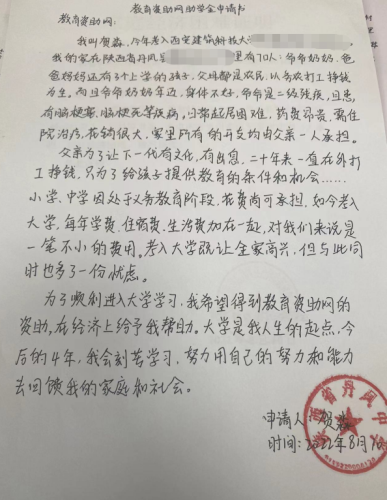 教育资助网助学金申请书
教育资助网：
我叫贺淼，今年考入西安建筑科技大
我的家在陕西省丹凤 里有7口人：爷爷奶奶、爸
爸妈妈还有3个上学的孩子，父母都是农民，以务农打工挣钱
为生，而且爷爷奶奶年迈，身体不好，爷爷是二级残疾，且患
有脑梗塞、脑梗死等疾病，日常起居困难，药费昂贵，需住
院治疗，花销很大，家里所有的开支均由父亲一人承担。
父亲为了让下一代有文化，有出息，二十年来一直在外打
工挣钱，只为了给孩子提供教育的条件和机会……
小学、中学因处于义务教育阶段，花费尚可承担，如今考入
大学，每年学费、住宿费、生活费加在一起，对我们来说是
一笔不小的费用。考入大学既让全家高兴，但与此同
时也多了一份忧虑。
为了顺利进入大学学习，我希望得到教育资助网的
资助，在经济上给予我帮助。大学是我人生的起点，今
后的4年，我会刻苦学习，努力用自己的努力和能力
去回馈我的家庭和社会。
申请人：贺淼
时间：2022年8月
陕西省丹凤中学